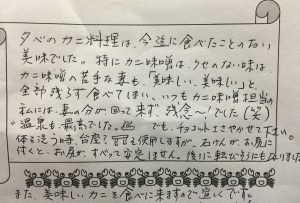 夕べのカニ料理は、今迄に食べたことのない
美味でした。特にカニ味噌は、クセのない味は、
カニ味噌の苦手な妻も、「美味しい、美味い」と
全部残らず食べてしまい、いつもカニ味噌担当の
私には、妻の分が回って来ず、残念〜!でした(笑)
温泉も、最高でした。でも、チョコットさやかせて下さい。
体を洗う時、台座?を使用しますが、石けんが、お尻に
付くと、お尻が、すべって安定しません。後ろに転びそうにもなりました
また、美味しいカニを食べに来ますので、宜しくです。